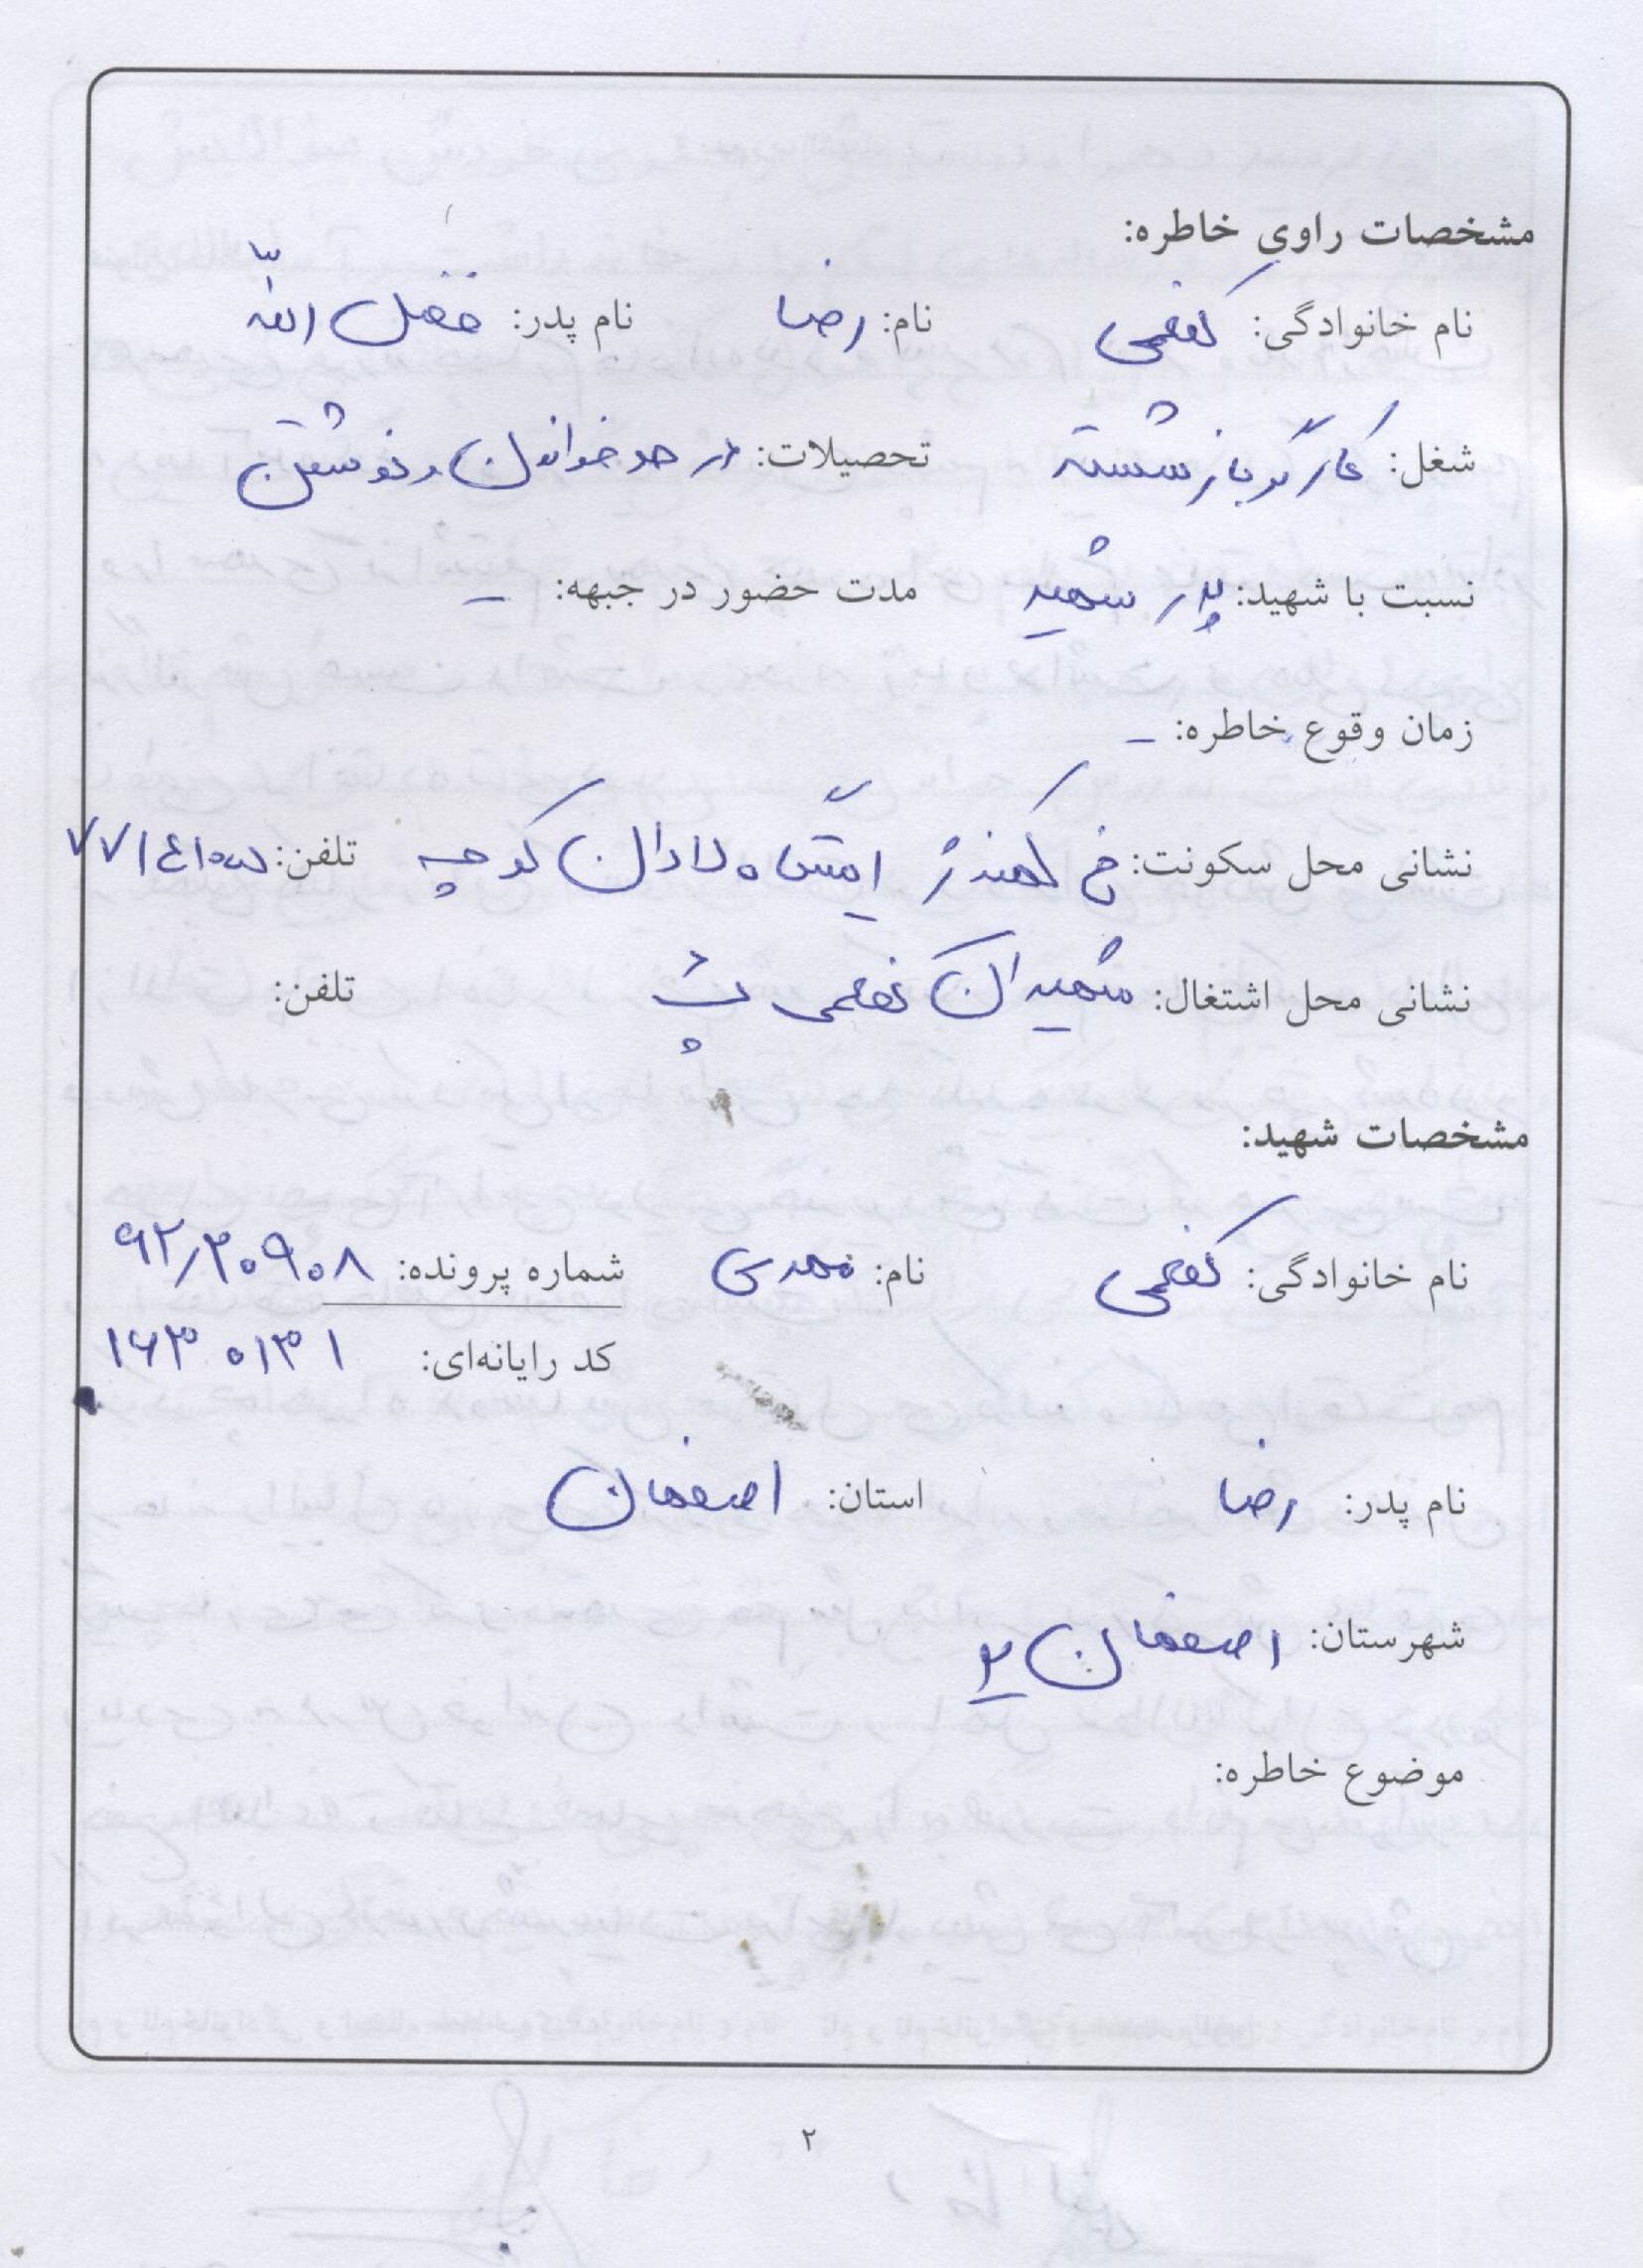 مشخصات راوی خاطره:
نام خانوادگی: کفعمی نام: رضا نام پدر: فضل الله
شغل: کارگر بازنشسته تحصیلات: در حد خواندن و نوشتن
نسبت با شهید: پدر شهید مدت حضور در جبهه: –
زمان وقوع خاطره: –
نشانی محل سکونت: خ کهندژ ایستگاه دادان کوچه تلفن:
نشانی محل اشتغال: شهیدان کفعمی تلفن:
مشخصات شهید:
نام خانوادگی: کفعمی نام: مهدی شماره پرونده: ۶۲/۳۰۹۰۸
کد رایانه‌ای: ۱۶۳۰۱۳۱
نام پدر: رضا استان: اصفهان
شهرستان: اصفهان ۲
موضوع خاطره:
۲